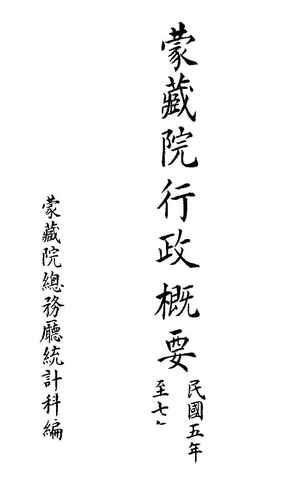 蒙藏院行政概要
民國五年
至七
蒙藏院總務廳統計科編